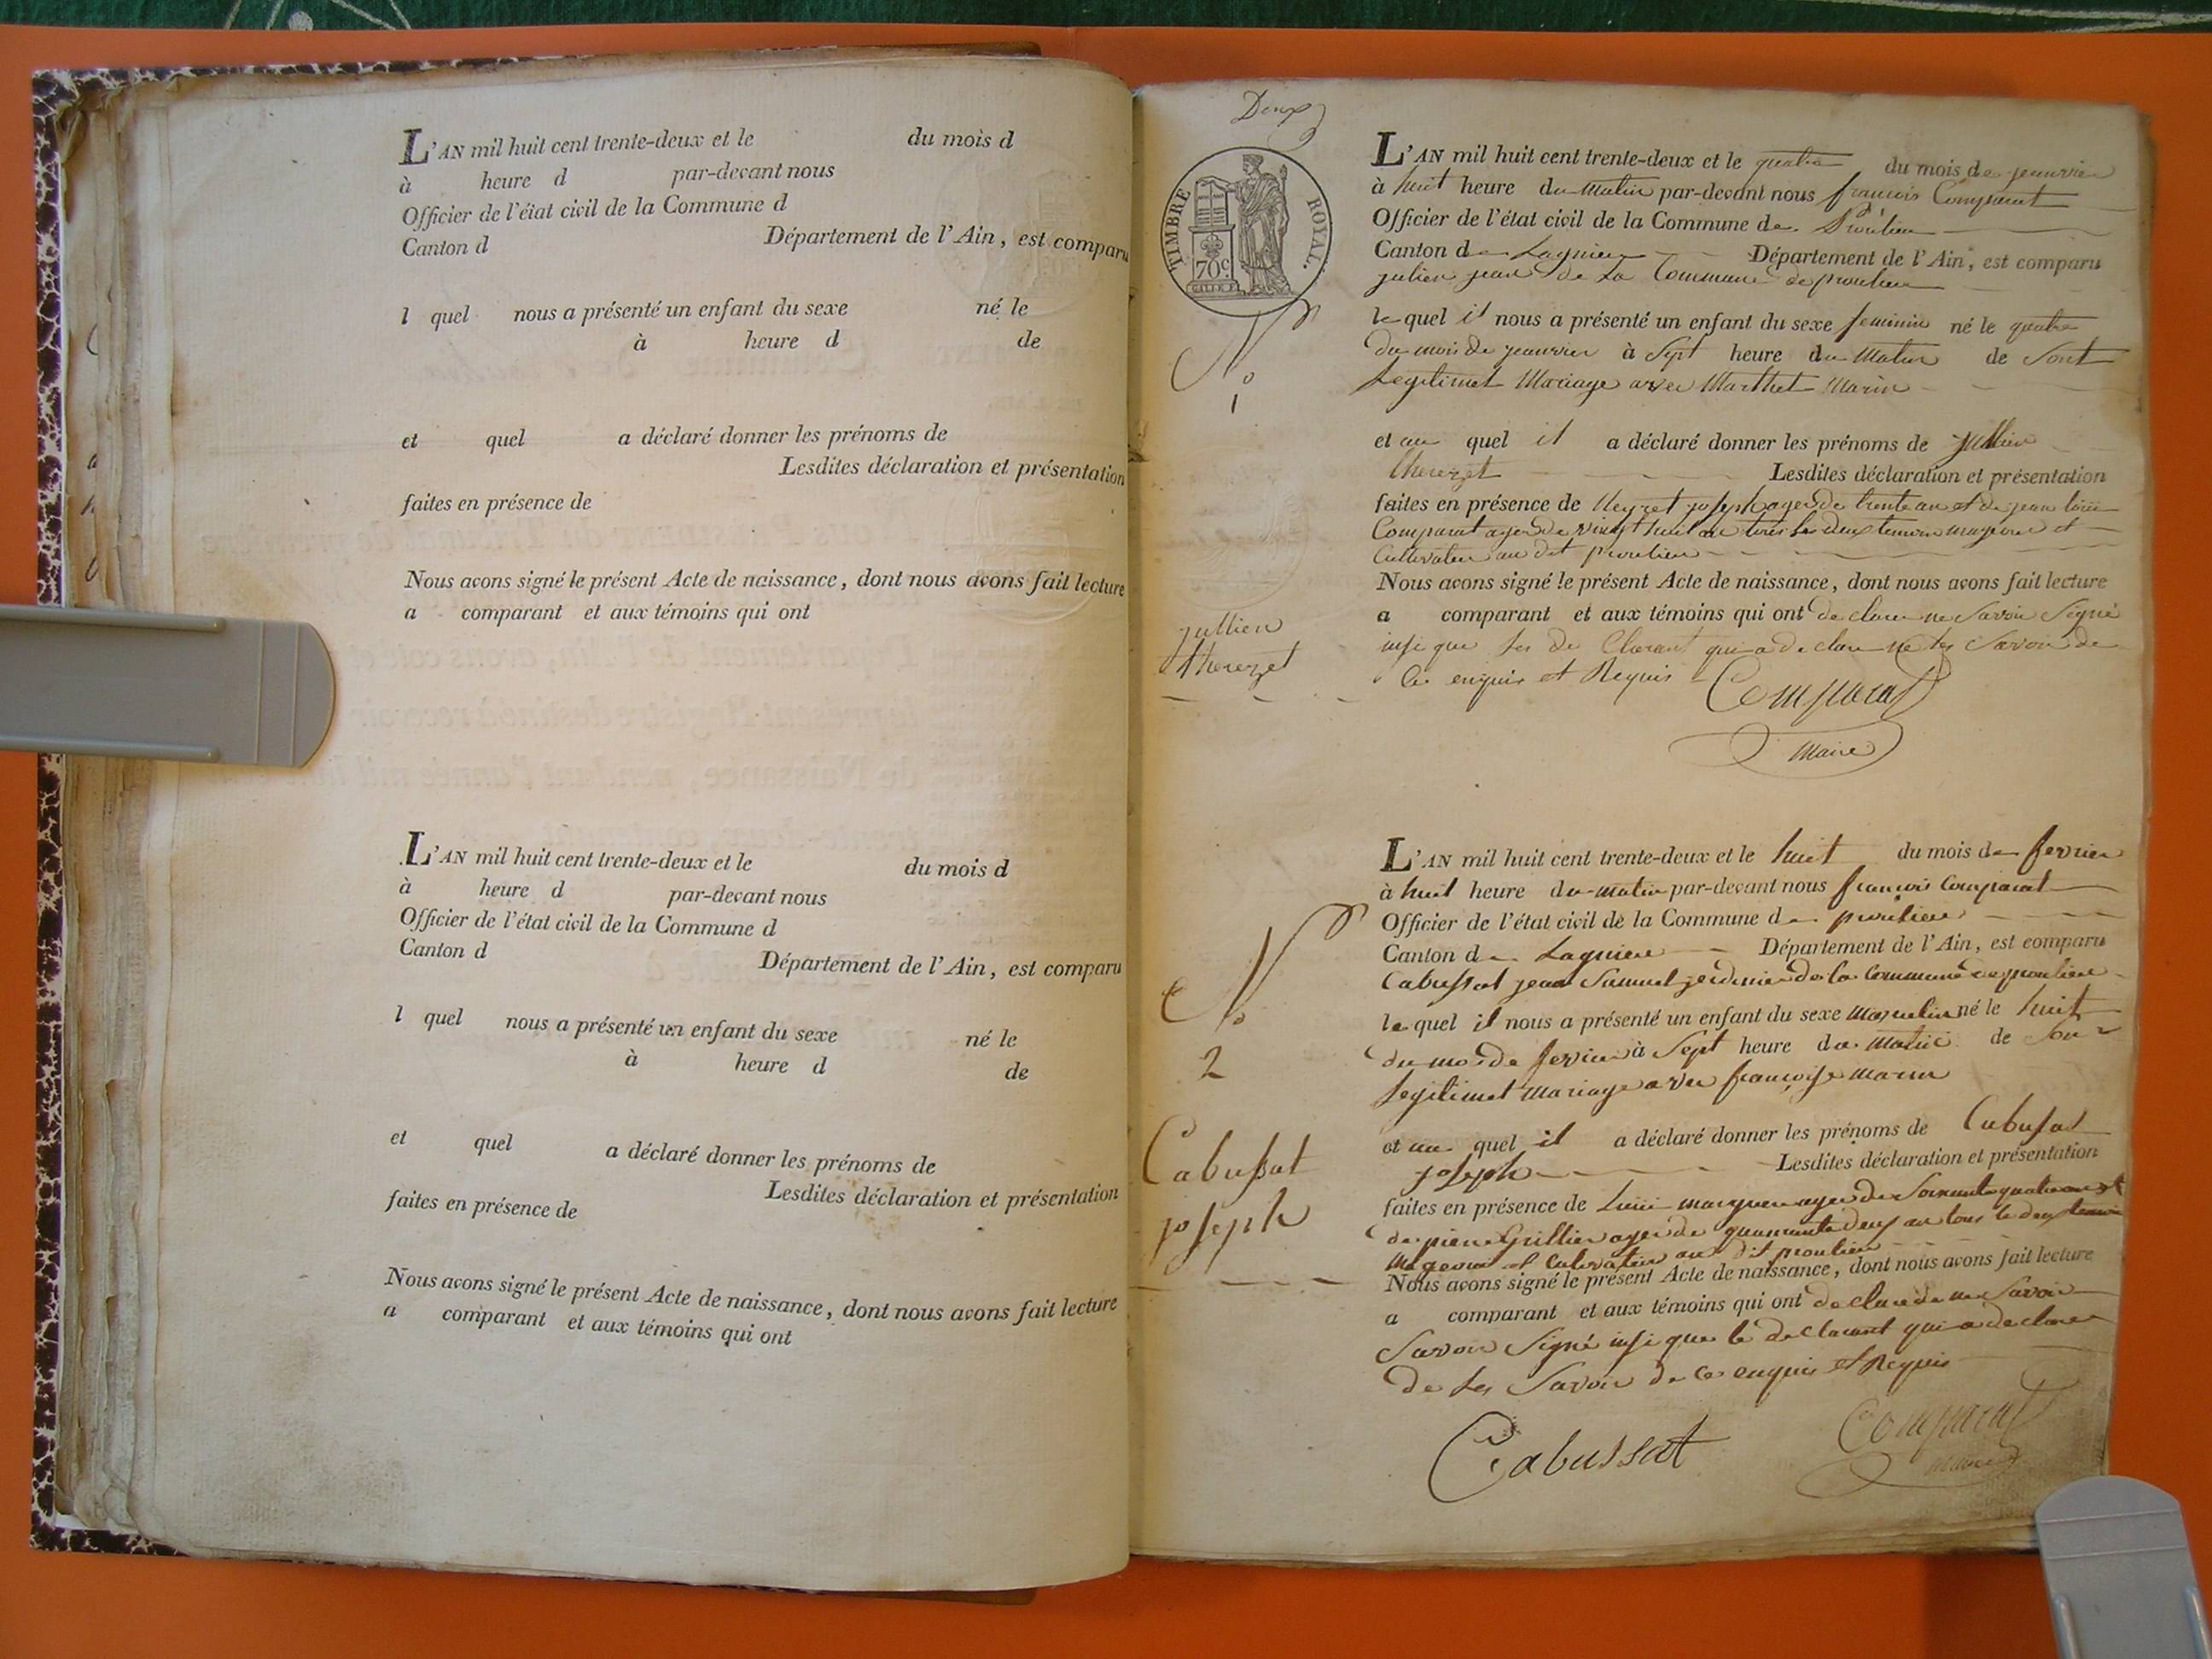 L'AN mil huit cent trente-deux et le du mois d
à heure d par-devant nous
Officier de l'état civil de la Commune d
Canton d Département de l'Ain, est comparu
l quel nous a présenté un enfant du sexe né le
à heure d de
et quel a déclaré donner les prénoms de
Lesdites déclaration et présentation
faites en présence de
Nous avons signé le présent Acte de naissance, dont nous avons fait lecture
a comparant et aux témoins qui ont
L'AN mil huit cent trente-deux et le du mois d
à heure d par-devant nous
Officier de l'état civil de la Commune d
Canton d Département de l'Ain, est comparu
l quel nous a présenté un enfant du sexe né le
à heure d de
et quel a déclaré donner les prénoms de
Lesdites déclaration et présentation
faites en présence de
Nous avons signé le présent Acte de naissance, dont nous avons fait lecture
a comparant et aux témoins qui ont
Deux
TIMBRE ROYAL.
70c.
L'AN mil huit cent trente-deux et le quatre du mois de jeanvier
à huit heure du matin par-devant nous francois Comparat
Officier de l'état civil de la Commune de Proulieu
Canton de Lagnieu Département de l'Ain, est comparu
julien jean de la Commune de proulieu
le quel il nous a présenté un enfant du sexe feminin né le quatre
du mois de jeanvier à Sept heure du Matin de Sont
Legitimet Mariage avec Marthet Marin
No
1
et au quel il a déclaré donner les prénoms de jullien
therezet Lesdites déclaration et présentation
faites en présence de Neyret joseph ager de trente an et de jean
Comparat ager de vingt huit an tous les deux temoin mageure et
Cultivateur au dit proulieu
Nous avons signé le présent Acte de naissance, dont nous avons fait lecture
a comparant et aux témoins qui ont declare ne Savoir Signé
insi que les de Clarant qui a declare ne les Savoir de
Ce enquis et Requis
jullien
therezet
Comparat
Maire
L'AN mil huit cent trente-deux et le huit du mois de fevrier
à huit heure du matin par-devant nous francois Comparat
Officier de l'état civil de la Commune de proulieu
Canton de Lagnieu Département de l'Ain, est comparu
Cabussat jean Samuel jerdinier de la Commune de proulieu
le quel il nous a présenté un enfant du sexe masculin né le huit
du mois de fevrier à Sept heure du Matin de Son
Legitimet mariage avec françoise marin
No
2
et au quel il a déclaré donner les prénoms de Cabusat
joseph Lesdites déclaration et présentation
faites en présence de ager de Soixante quatre an et
de pierre Grillier ager de quarante deux an tous le deux temoin
Mageure et Cultivateur au dit proulieu
Nous avons signé le présent Acte de naissance, dont nous avons fait lecture
a comparant et aux témoins qui ont declare de ne Savoir
Savoir Signé insi que le declarant qui a declare
de les Savoir de ce enquis et Requis
Cabussat
joseph
Cabussat
Comparat
maire